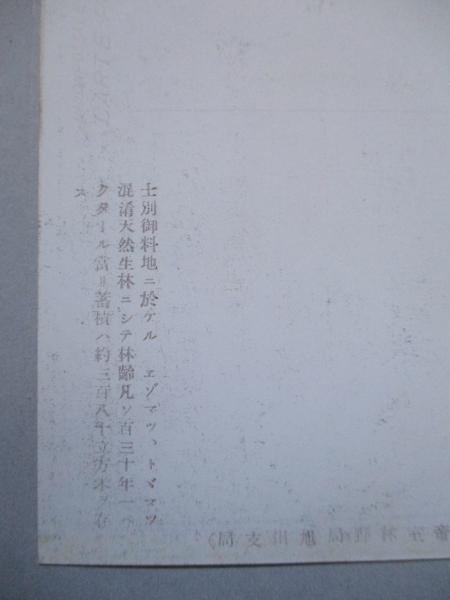 士別御料地ニ於ケル エゾマツ、トドマツ
混淆天然生林ニシテ林齢凡ソ百三十年一ヘ
クタール當リ蓄積ハ約三百八十立方米ヲ存
ス
帝室林野局旭川支局)